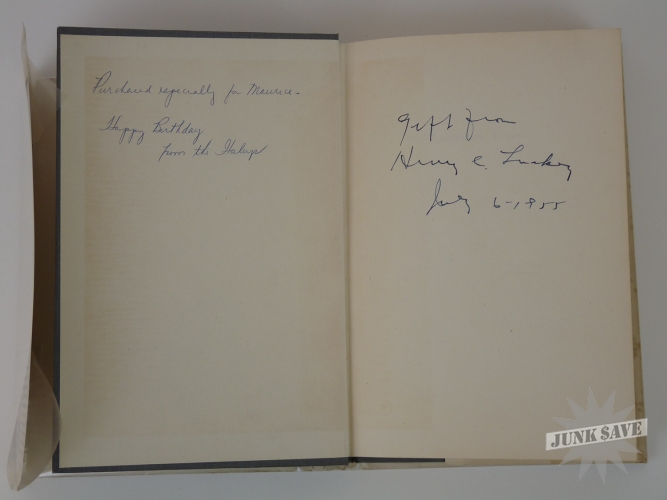 Purchased especially for Maurice -
Happy Birthday
from the
Gift from
Henry C. Luckey
July 6-1955
JUNK $AVE